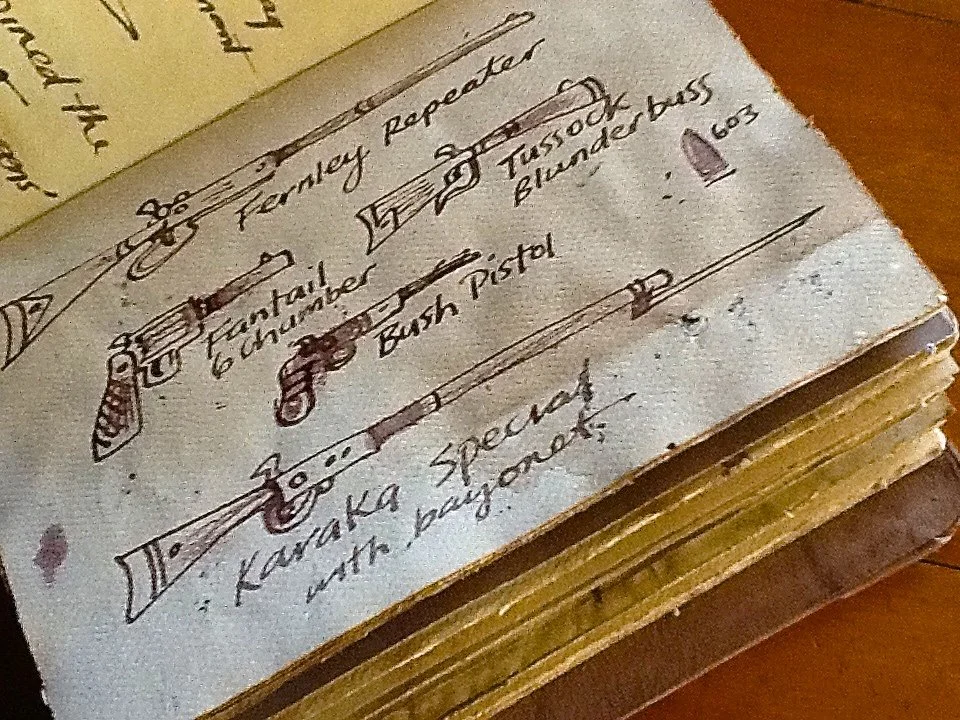 ined the
Fernley Repeater
Tussock
Blunderbuss
603
Fantail
6 chamber
Bush Pistol
Karaka Special
with bayonet